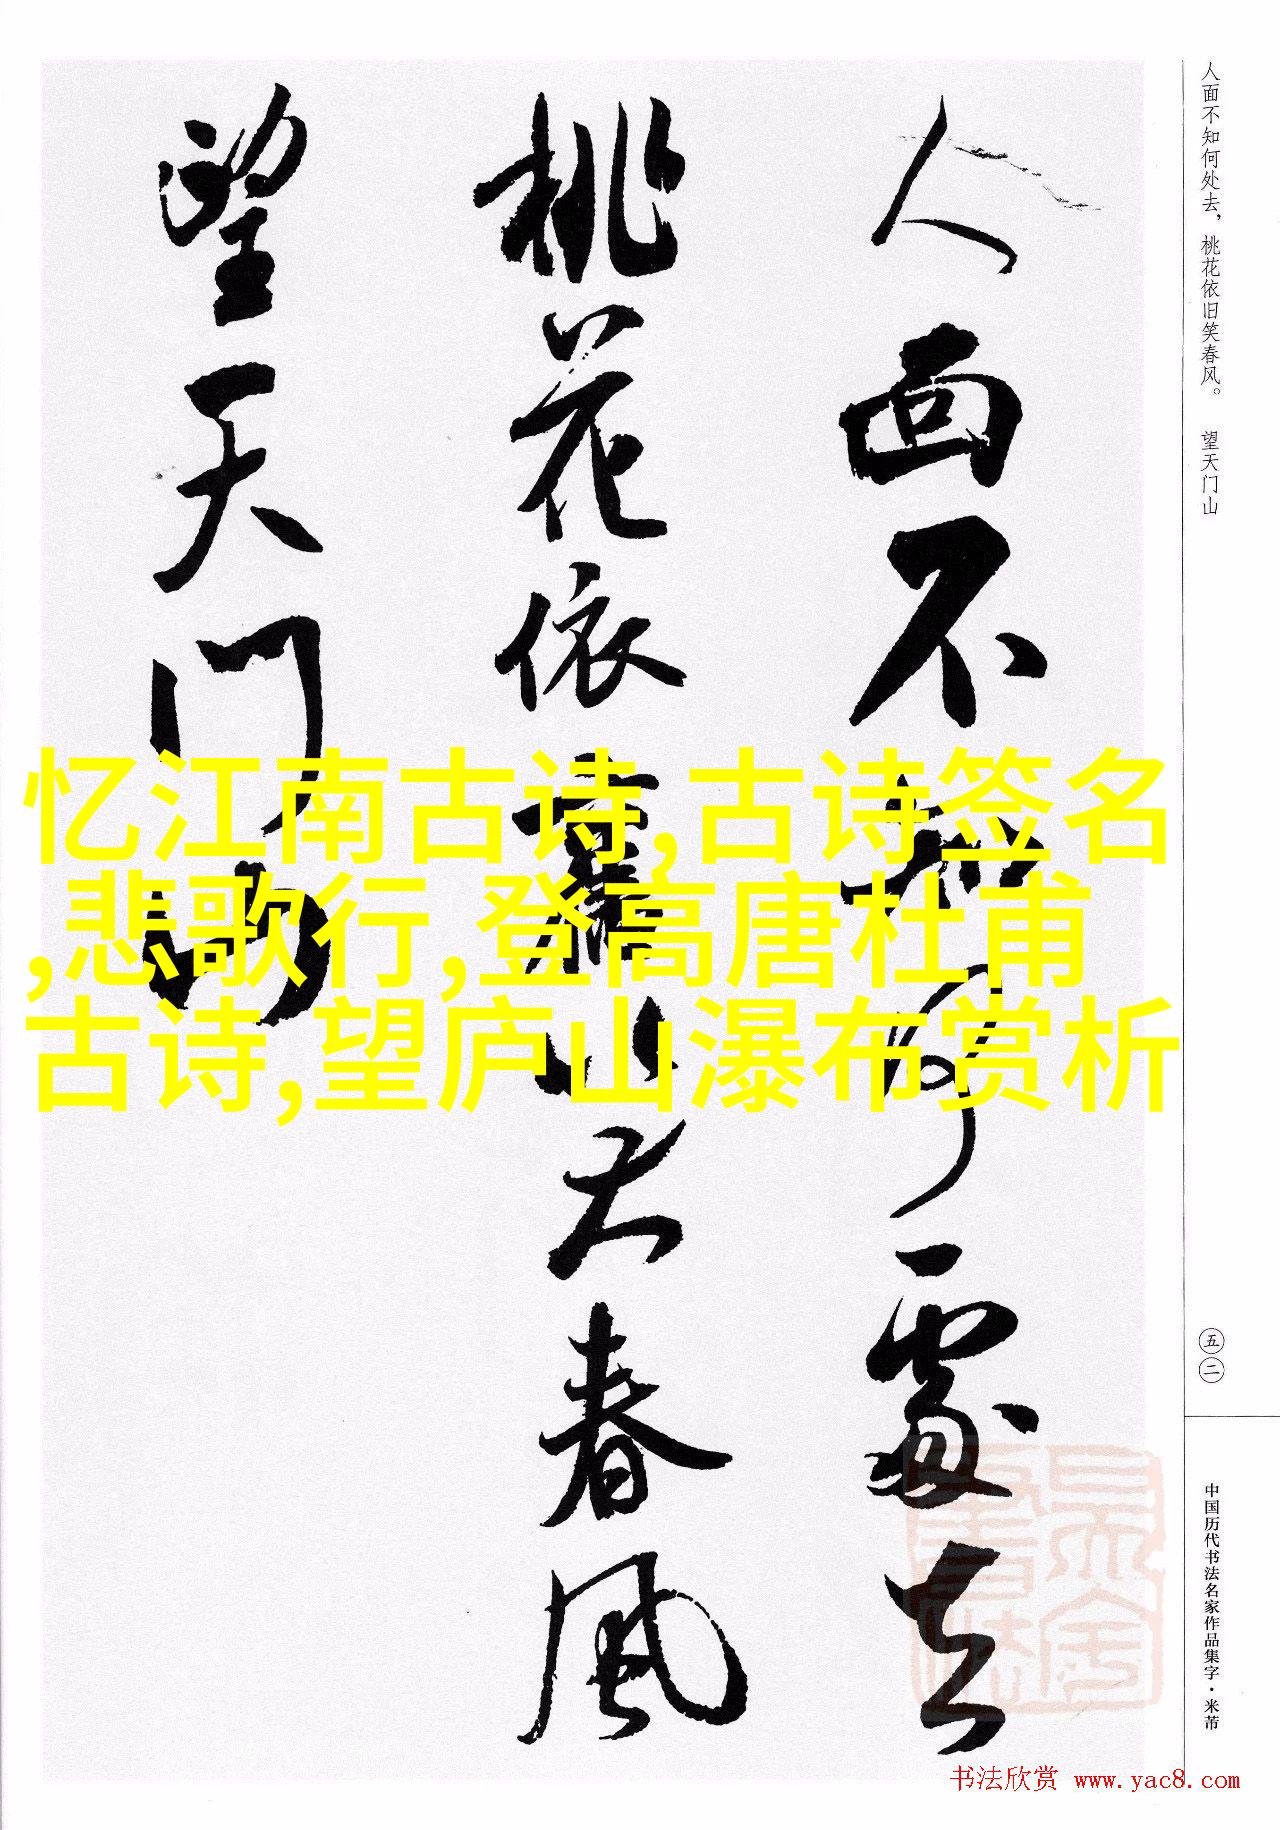 人面不知何处去，桃花依旧笑春风。　望天门山
人面不知何處去
桃花依舊笑春風
望天门山
忆江南古诗,古诗签名
,悲歌行,登高唐杜甫
古诗,望庐山瀑布赏析
五二
中国历代书法名家作品集字·米芾
书法欣赏 www.yac8.com